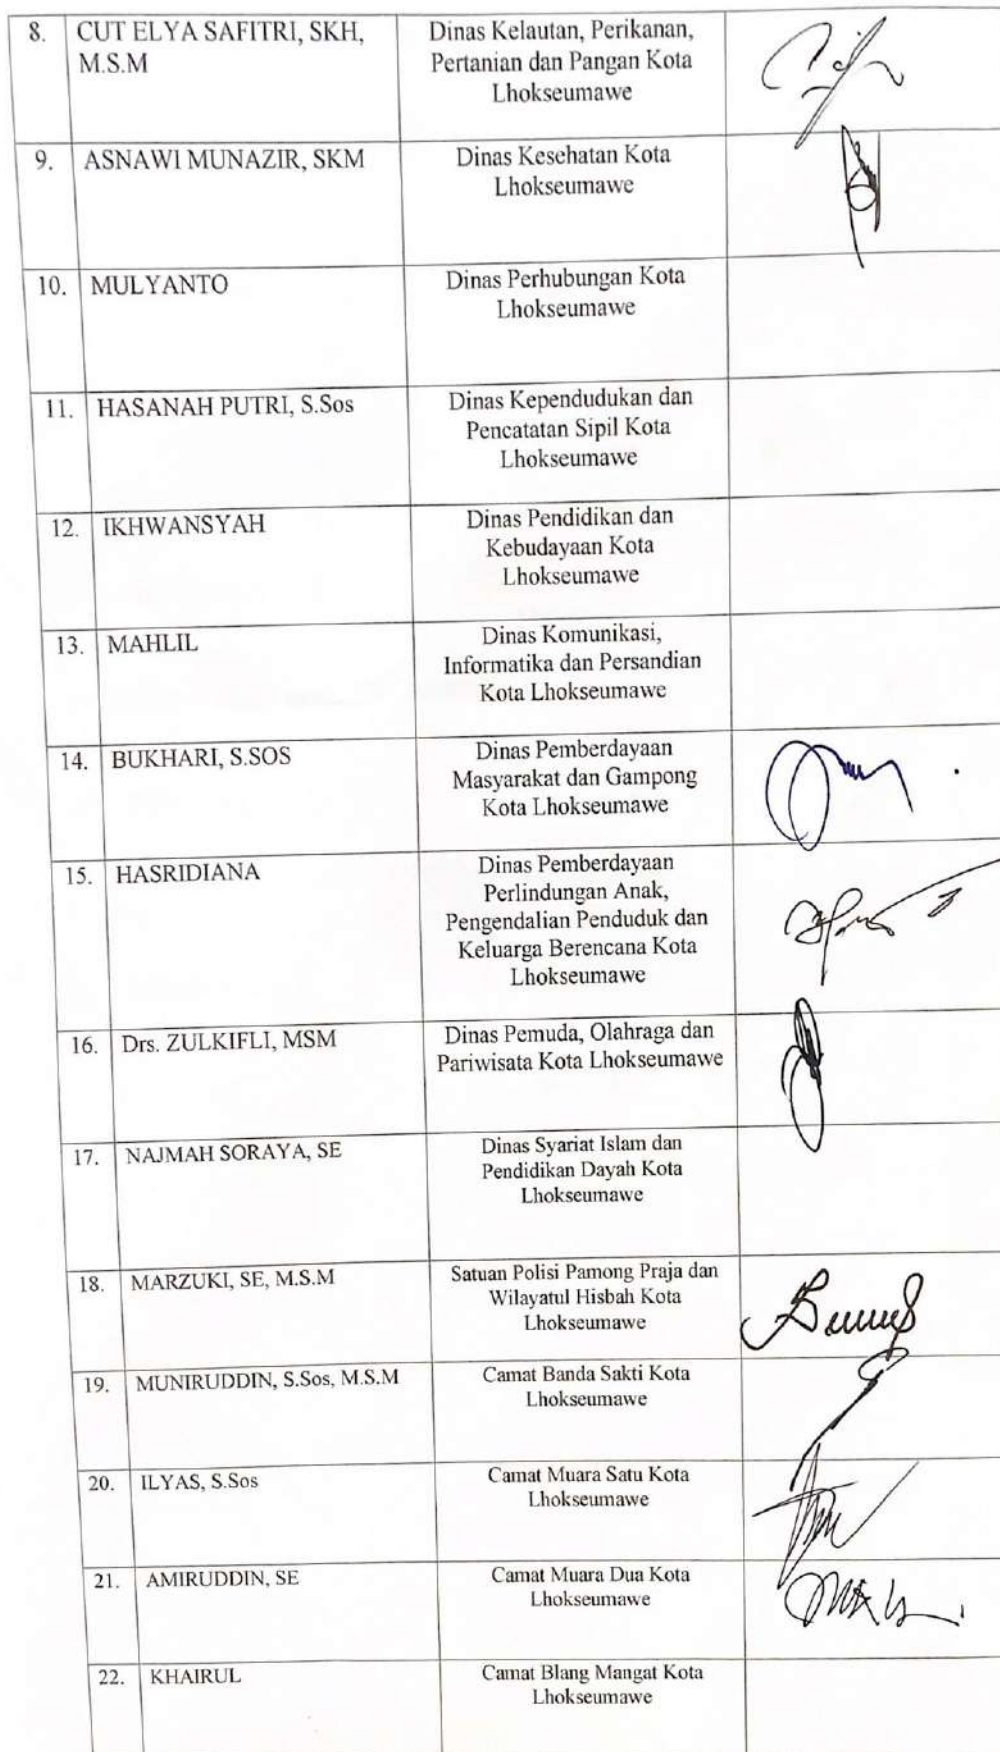 8. CUT ELYA SAFITRI, SKH, Dinas Kelautan, Perikanan,
M.S.M Pertanian dan Pangan Kota
Lhokseumawe
9. ASNAWI MUNAZIR, SKM Dinas Kesehatan Kota
Lhokseumawe
10. MULYANTO Dinas Perhubungan Kota
Lhokseumawe
11. HASANAH PUTRI, S.Sos Dinas Kependudukan dan
Pencatatan Sipil Kota
Lhokseumawe
12. IKHWANSYAH Dinas Pendidikan dan
Kebudayaan Kota
Lhokseumawe
13. MAHLIL Dinas Komunikasi,
Informatika dan Persandian
Kota Lhokseumawe
14. BUKHARI, S.SOS Dinas Pemberdayaan
Masyarakat dan Gampong
Kota Lhokseumawe
15. HASRIDIANA Dinas Pemberdayaan
Perlindungan Anak,
Pengendalian Penduduk dan
Keluarga Berencana Kota
Lhokseumawe
16. Drs. ZULKIFLI, MSM Dinas Pemuda, Olahraga dan
Pariwisata Kota Lhokseumawe
17. NAJMAH SORAYA, SE Dinas Syariat Islam dan
Pendidikan Dayah Kota
Lhokseumawe
18. MARZUKI, SE, M.S.M Satuan Polisi Pamong Praja dan
Wilayatul Hisbah Kota
Lhokseumawe
19. MUNIRUDDIN, S.Sos, M.S.M Camat Banda Sakti Kota
Lhokseumawe
20. ILYAS, S.Sos Camat Muara Satu Kota
Lhokseumawe
21. AMIRUDDIN, SE Camat Muara Dua Kota
Lhokseumawe
22. KHAIRUL Camat Blang Mangat Kota
Lhokseumawe